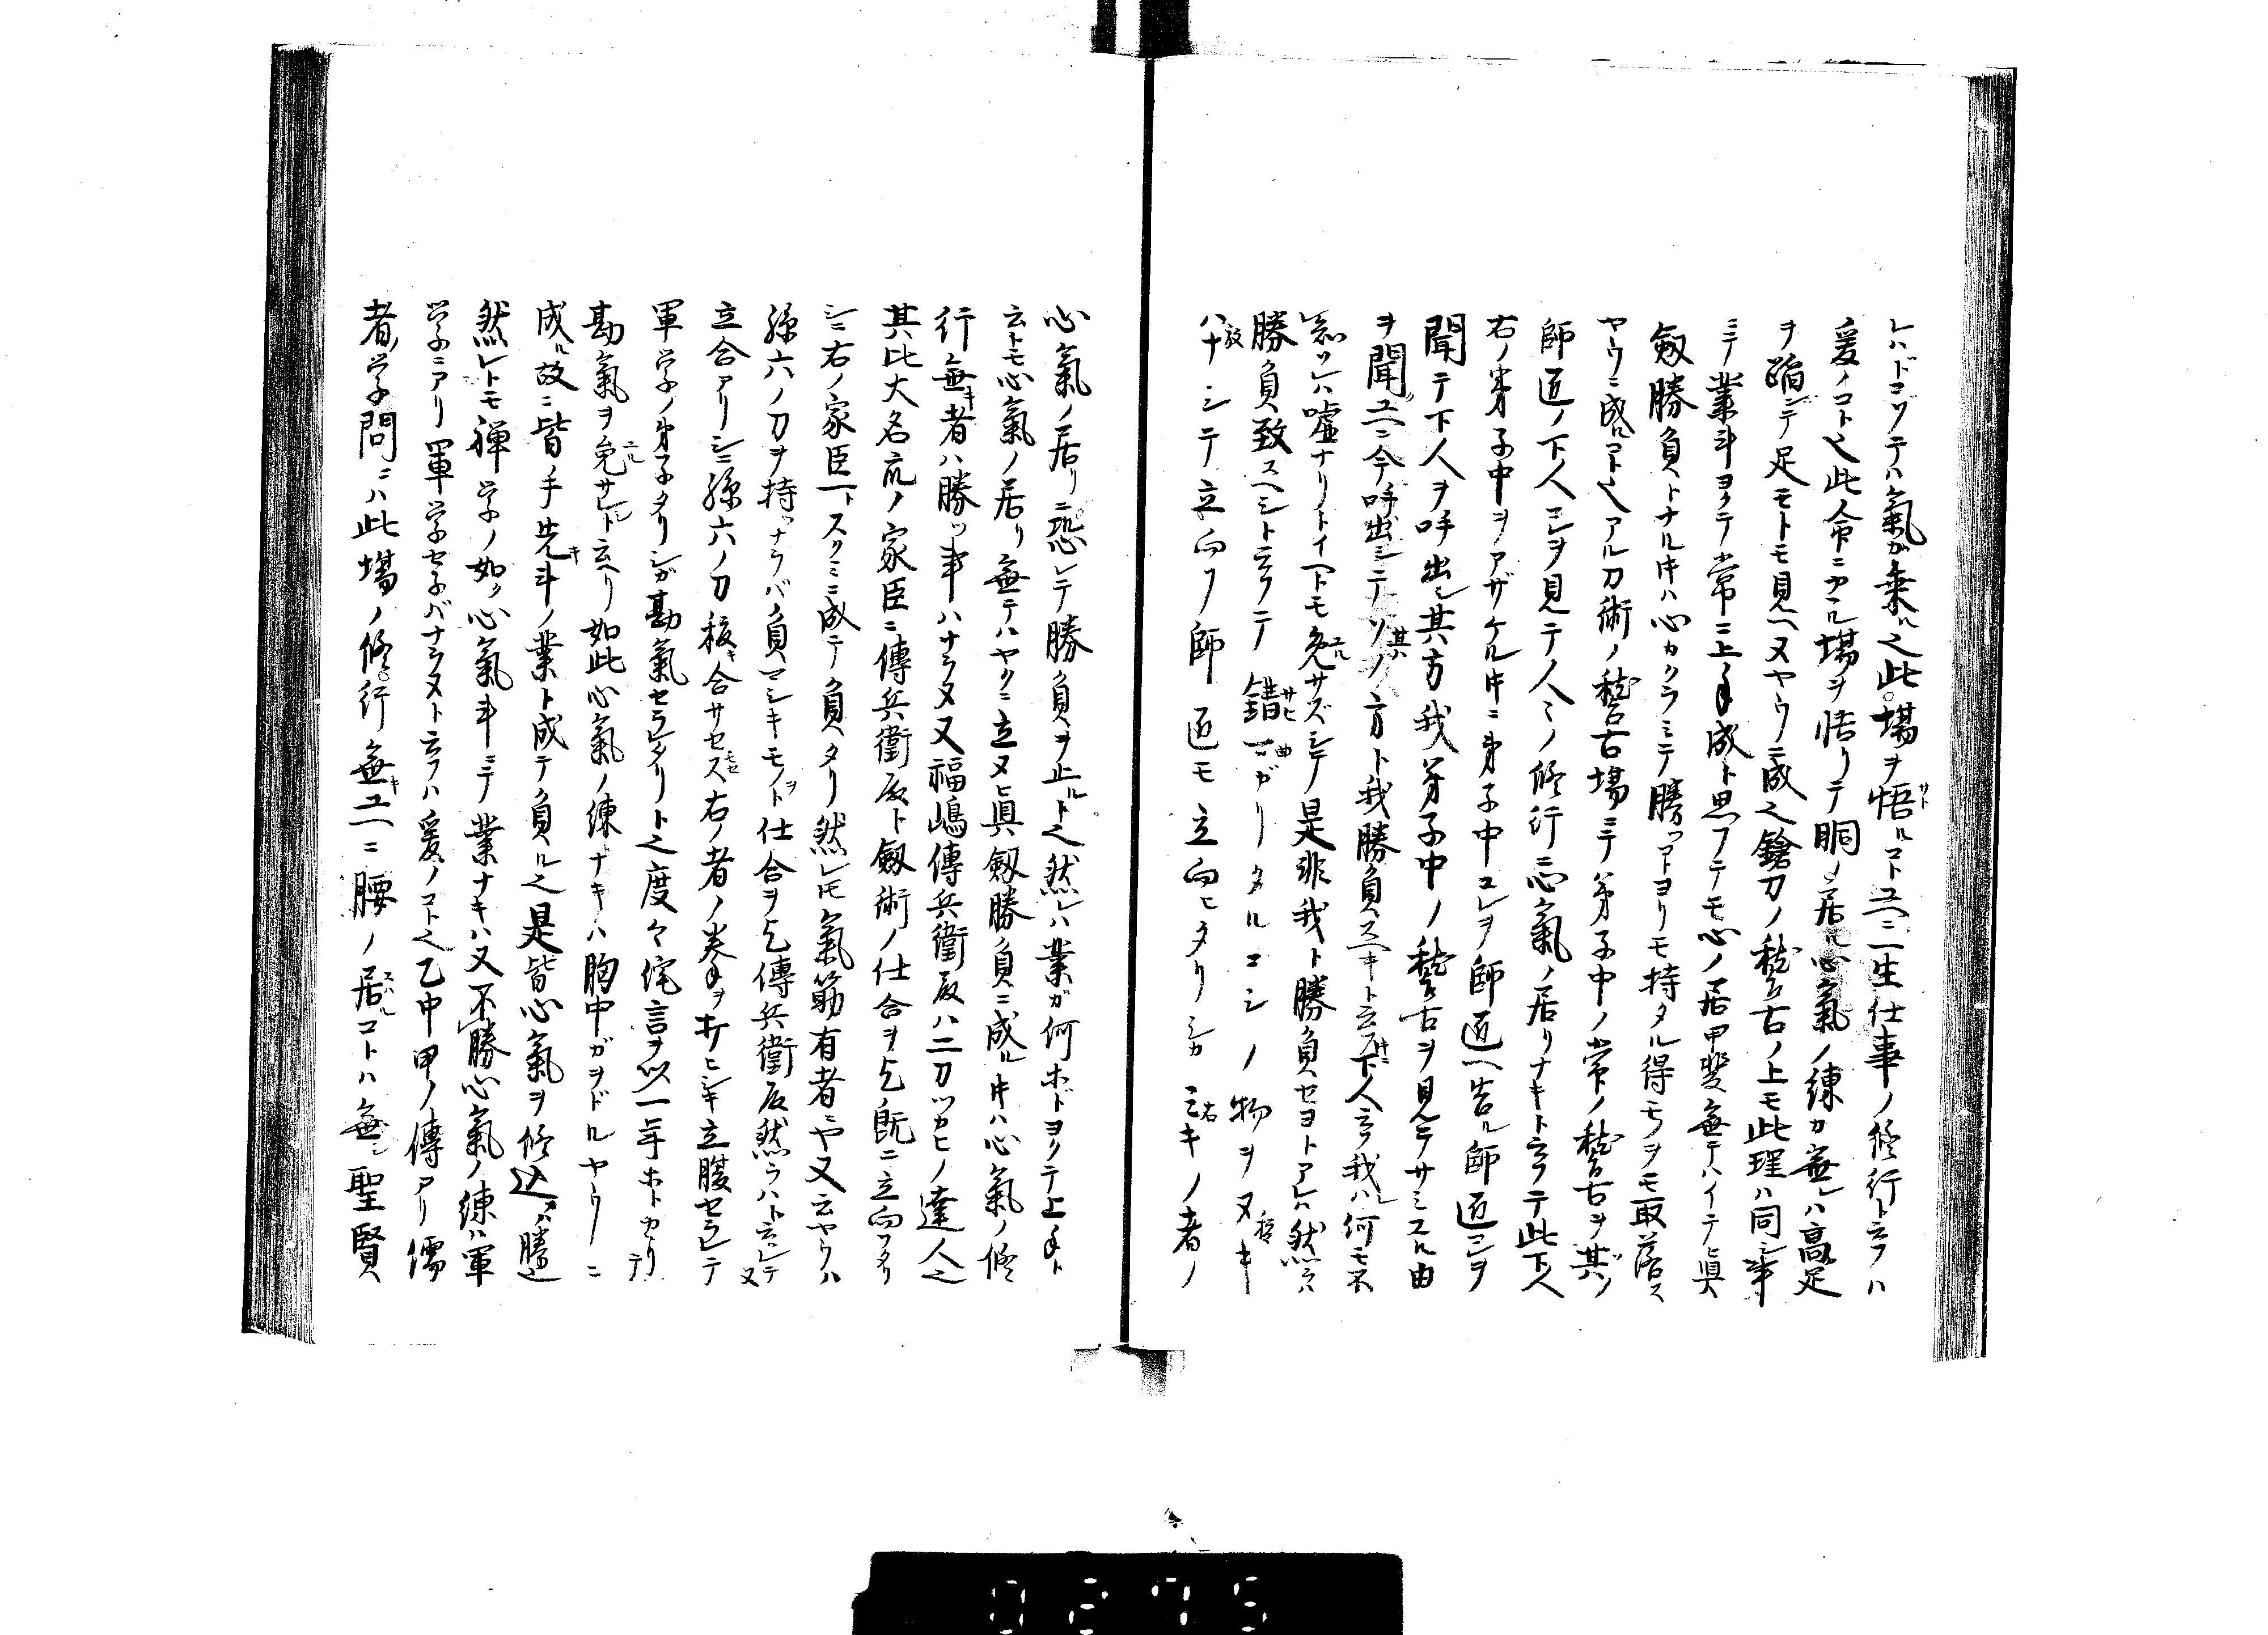 レハドコゾテハ氣ガ乗ル之此場ヲ悟ルコト故ニ一生仕事ノ修行ト云フハ
爰ノコト之此命ニカヽル場ヲ悟リテ胴ノ居ル心氣ノ練カ無レハ高足
ヲ踏ンテ足モトモ見ヘヌヤウニ成之鎗刀ノ稽古ノ上モ此理ハ同シ事
ミテ業斗ヨクテ常ニ上手成ト思フテモ心ノ居甲斐無テハイテ眞
剱勝負トナル時ハ心カクラミテ勝ツコトヨリモ持タル得モノヲモ取落ス
ヤウニ成ルコト之アル刀術ノ稽古場ニテ弟子中ノ常ノ稽古ヲ其ノ
師匠ノ下人コレヲ見テ人々ノ修行ニ心氣ノ居リナキト云フテ此下人
右ノ弟子中ヲアザケル時ニ弟子中コレヲ師匠ヘ告ル師匠コレヲ
聞テ下人ヲ呼出シ其方我弟子中ノ稽古ヲ見テサミスル由
ヲ聞ユヘニ今呼出シテソノ方ト我勝負スヘキト云フ時ニ下人云フ我ハ何モ不
知ソレハ嘘ナリトイヘトモ免サズシテ是非我ト勝負セヨトアレハ然ラハ
勝負致スヘシト云フテ錆マガリタルコシノ物ヲヌキ
ハナシテ立向フ師匠モ立向ヒタリシカミキノ者ノ
心氣ノ居リニ恐レテ勝負ヲ止ルト之然レハ業ガ何ホドヨクテ上手ト
云トモ心氣ノ居リ無テハヤクニ立ヌ眞剱勝負ニ成ル時ハ心氣ノ修
行無キ者ハ勝ツ事ハナラヌ又福嶋傳兵衛殿ハ二刀ツカヒノ達人之
其比大名衆ノ家臣ニ傳兵衛殿ト剱術ノ仕合ヲ乞既ニ立向フタリ
シニ右ノ家臣一トスクミニ成テ負タリ然レ氣筋有者ニヤ又云ヤウハ
孫六ノ刀ヲ持ツナラバ負マシキモノヲト仕合ヲ乞傳兵衛殿然ラハト云レテ又
立合アリシニ孫六ノ刀抜キ合サセス右ノ者ノ拳ヲ打ヒシキ立腹セラレテ
軍学ノ弟子タリシガ勘氣セラレタリト之度々侘言ヲ以一年ホトカヽリテ
勘氣ヲ免サレシト云ヘリ如此心氣ノ練ナキハ胸中ガヲドルヤウニ
成ル故ニ皆手先キ斗ノ業ト成テ負ル之是皆心氣ヲ修込ハ勝之
然レトモ禅学ノ如ク心氣斗ニテ業ナキハ又不勝心氣ノ練ハ軍
学ニアリ軍学セネバナラヌト云フハ爰ノコト之乙中甲ノ傳アリ儒
者ノ学問ニハ此場ノ修行無キユヘニ腰ノ居ルコトハ無シ聖賢